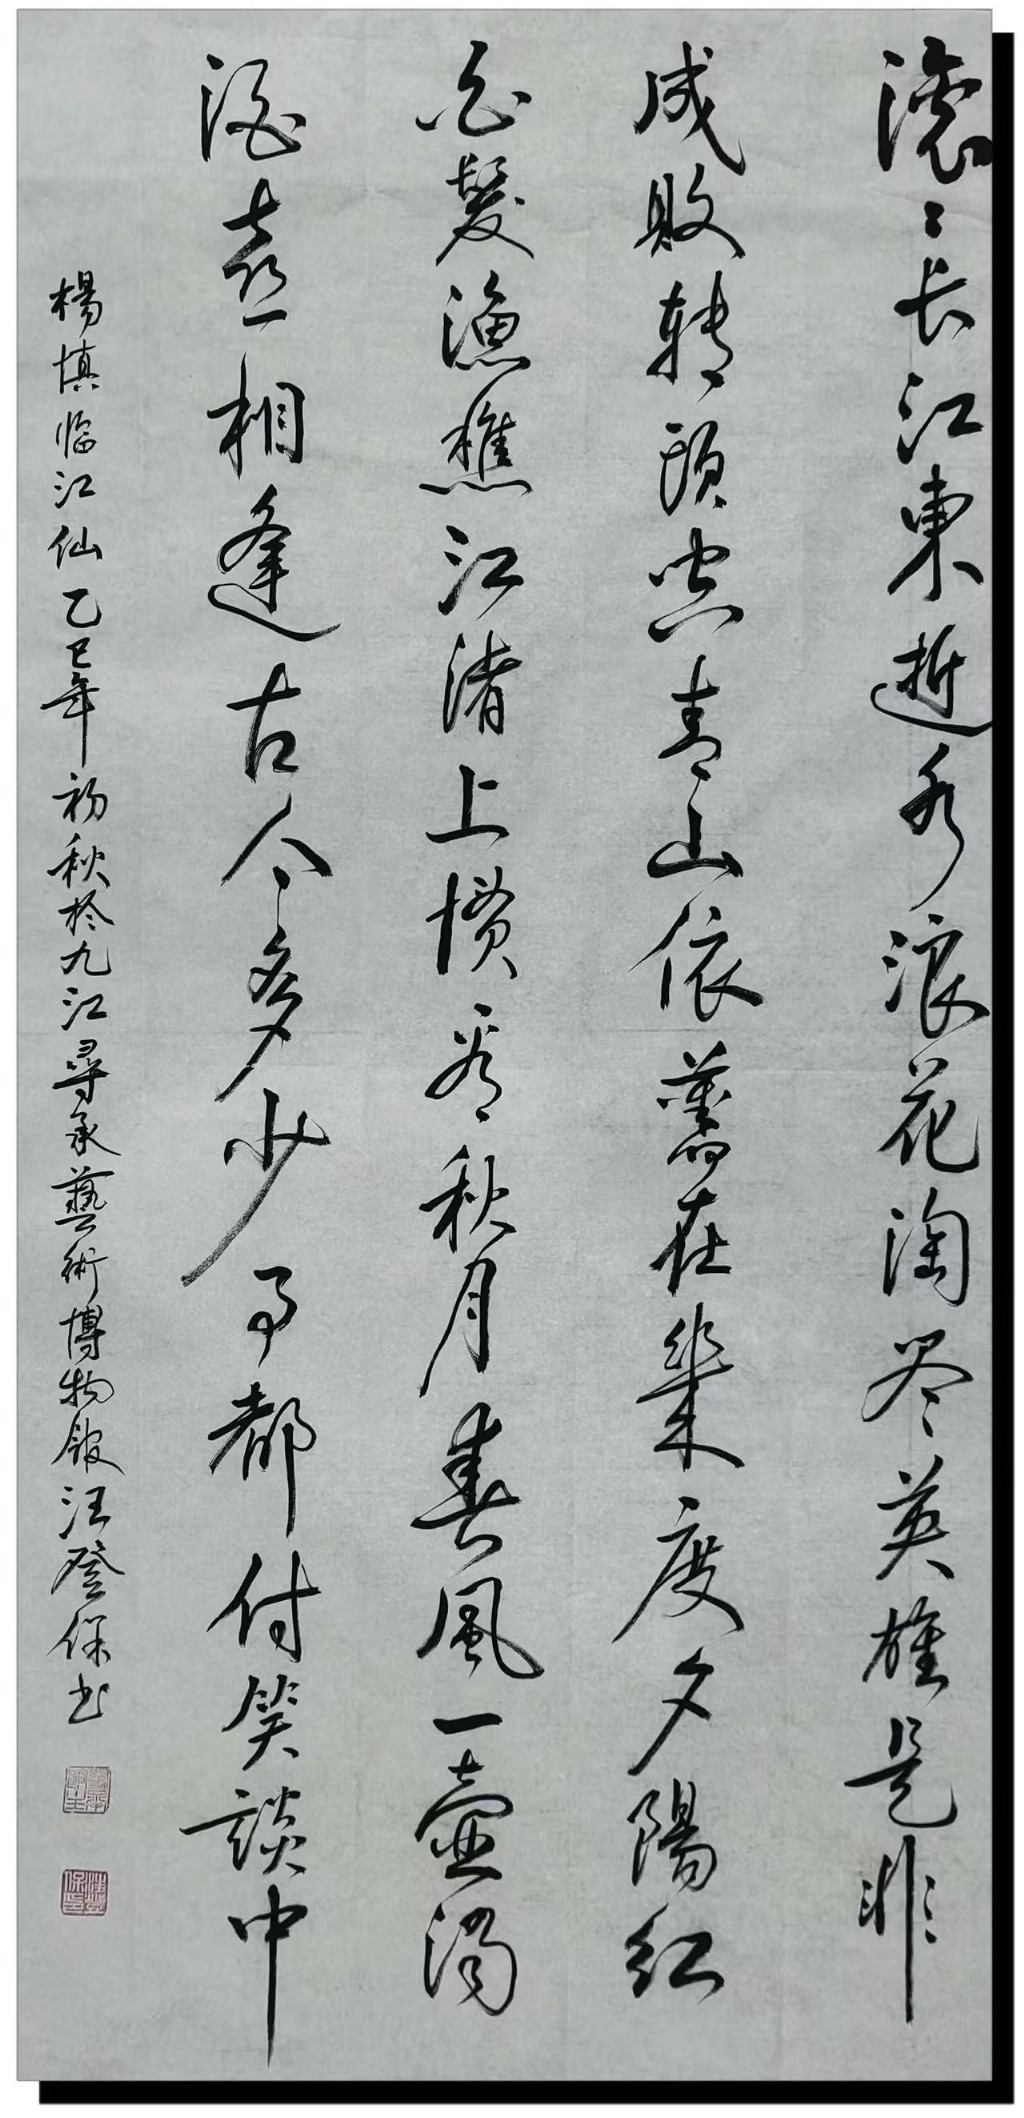 滚〻长江東逝水浪花淘尽英雄是非
成敗转頭空青山依舊在幾度夕陽红
白髮漁樵江渚上惯看秋月春風一壶濁
酒喜相逢古今多少事都付笑談中
楊慎临江仙乙巳年初秋於九江尋承藝術博物館汪登保书